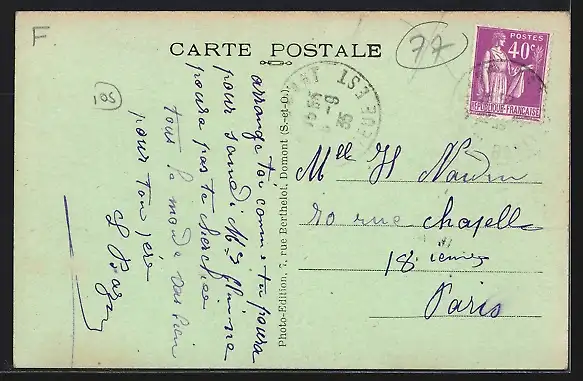 F
CARTE POSTALE
77
105
POSTES
40c
REPUBLIQUE FRANÇAISE
EST
-9
35
arrange toi comme tu poura
pour samdi Me
poura pas te cherchee
tous le monde vas bien
pour ton père
Photo-Edition, 7, rue Berthelot, Domont (S.-et-O.).
Mlle H Naudin
20 rue Chapelle
18 ieme
Paris